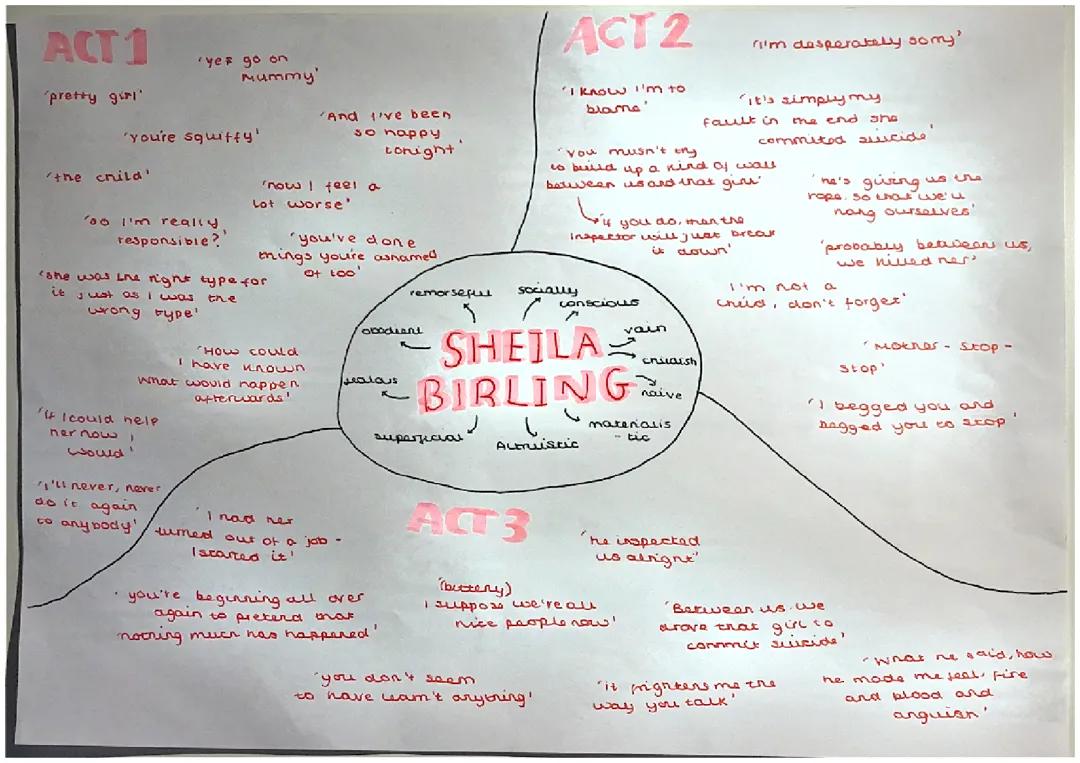 ACT 1
'yes go on
Mummy'
'pretty girl'
'you're squiffy'
'And I've been
so happy
tonight'
'the child'
'now I feel a
lot worse'
'so I'm really
responsible?'
'you've done
things you're ashamed
of too'
'she was the right type for
it just as I was the
wrong type'
'How could
I have known
what would happen
afterwards'
'if I could help
her now I
would'
'I'll never, never
do it again
to anybody'
ACT 2
'I'm desperately sorry'
'I know I'm to
blame'
'it's simply my
fault in the end she
committed suicide'
'you musn't try
to build up a kind of wall
between us and that girl'
'if you do, then the
inspector will just break
it down'
'he's giving us the
rope. so that we'll
hang ourselves'
'probably between us,
we killed her'
I'm not a
child, don't forget'
'Mother - stop -
stop'
'I begged you and
begged you to stop'
remorseful
socially
conscious
obedient
vain
childish
naive
jealous
superficial
Altruistic
materialis
-tic
SHEILA
BIRLING
ACT 3
'I had her
turned out of a job -
I started it'
'he inspected
us alright'
'you're beginning all over
again to pretend that
nothing much has happened'
'(bitterly)
I suppose we're all
nice people now'
'Between us we
drove that girl to
commit suicide'
'you don't seem
to have learn't anything'
'it frightens me the
way you talk'
'What he said, how
he made me feel, fire
and blood and
anguish'